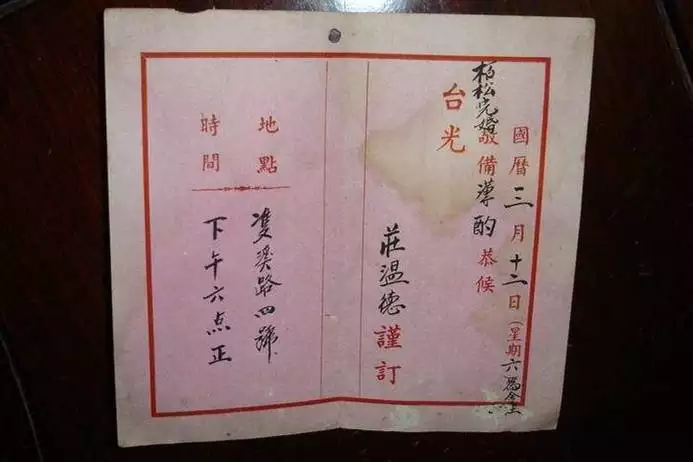 國曆三月十二日(星期六為
柏松完婚敬備薄酌恭候
台光
莊温德謹訂
地點 雙溪路四號
時間 下午六点正